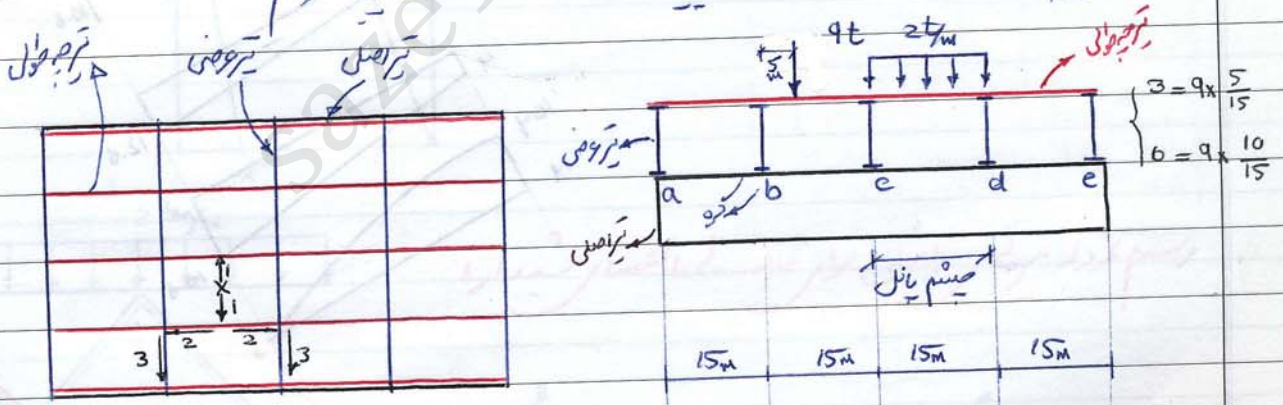 تیرچه طولی
تیرعرضی
تیر اصلی
3
2
2
3
1
1
5m
9t
2t/m
تیرچه طولی
3 = 9x 5/15
6 = 9x 10/15
تیرعرضی
a
b
c
d
e
گره
تیر اصلی
چشم پانل
15m
15m
15m
15m
saze